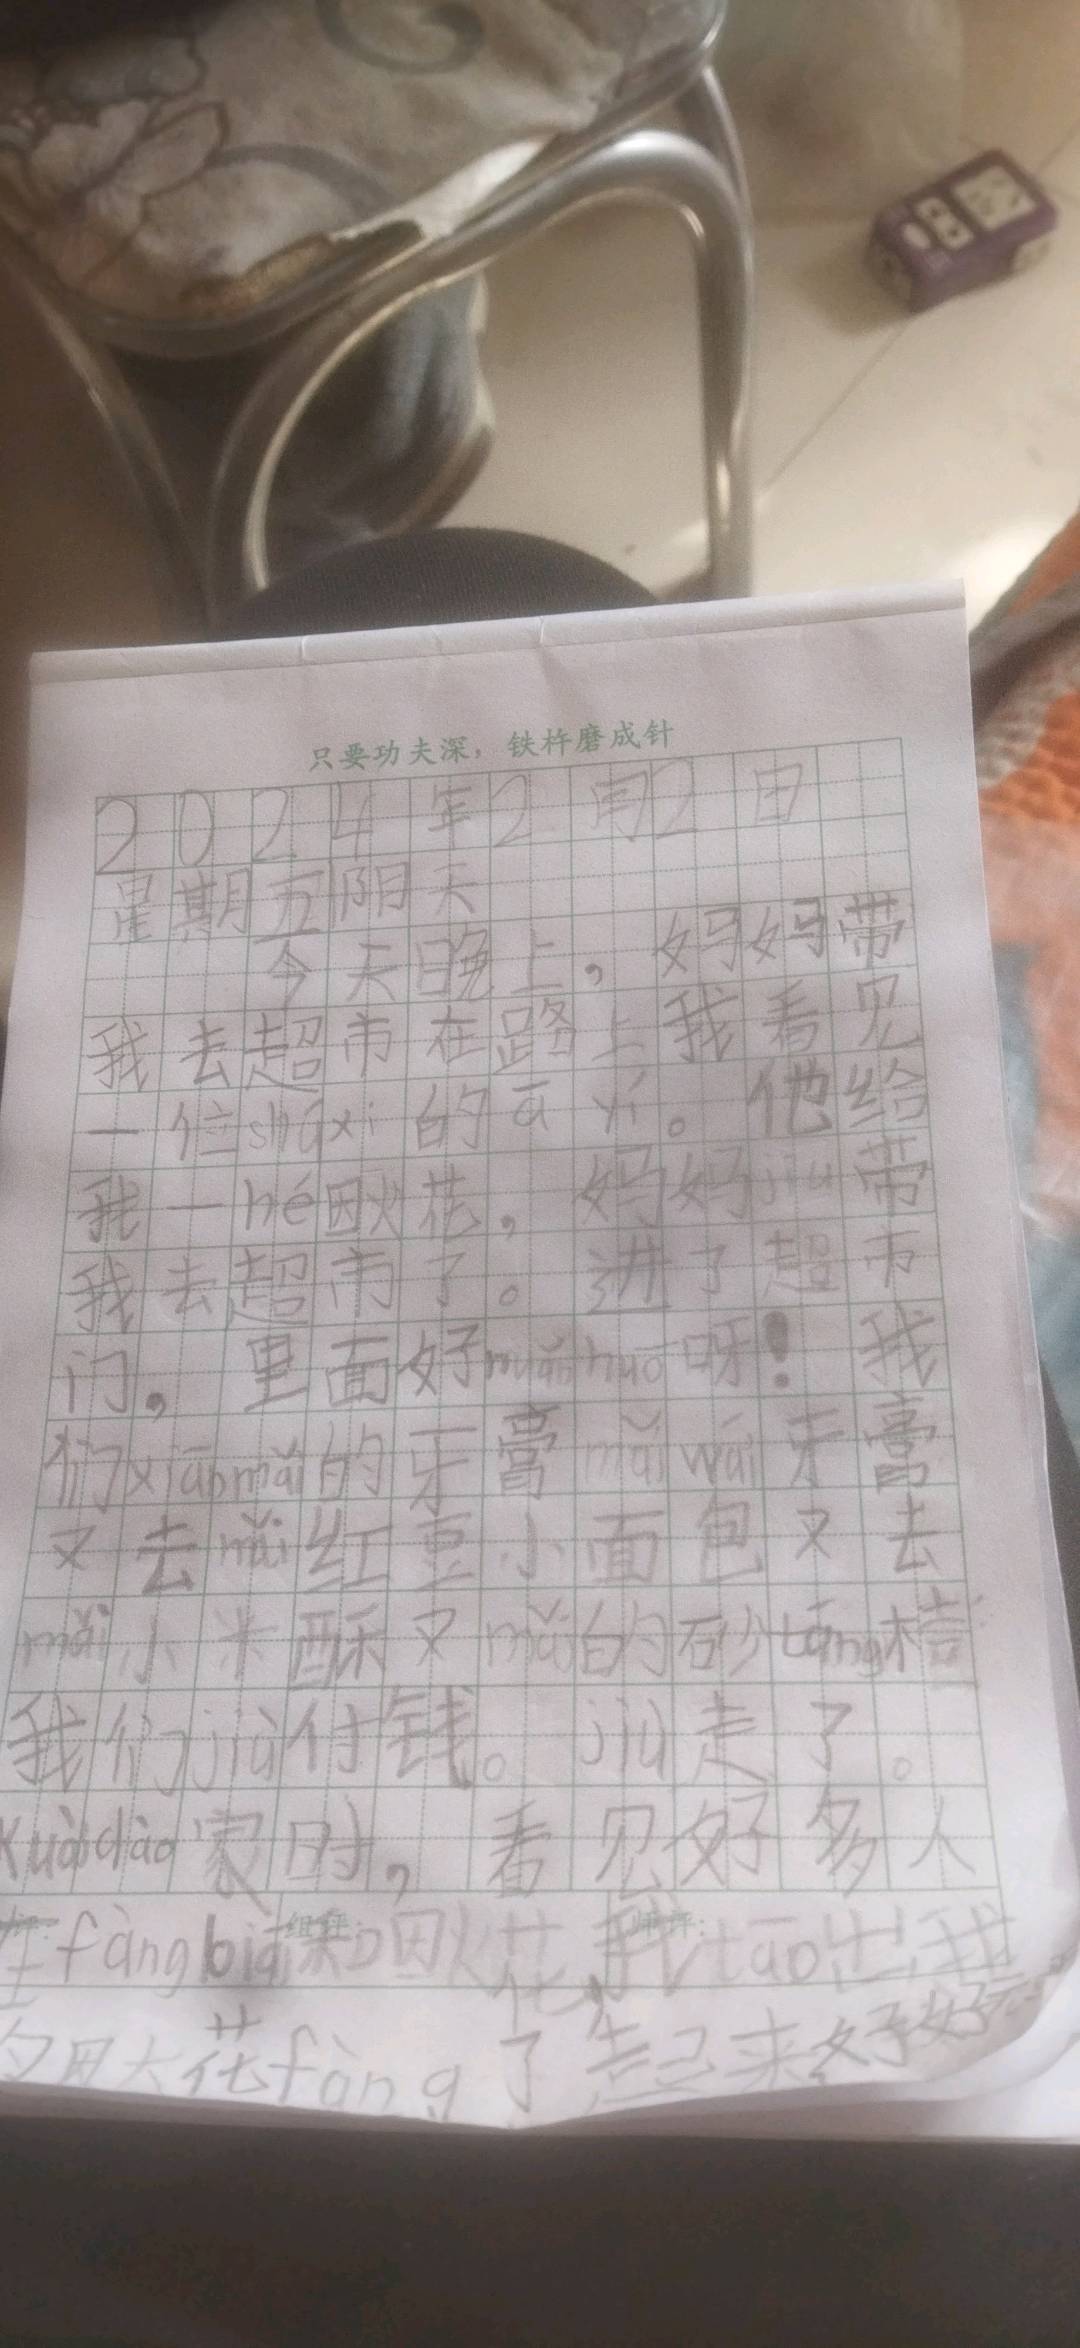 只要功夫深，铁杵磨成针
2024年2月2日
星期五阳天
今天晚上，妈妈带
我去超市在路上我看见
一位shúxi的ā yí。他给
我一hé烟花，妈妈jiù带
我去超市了。进了超市
门，里面好nuǎnhuo呀！我
们xiānmǎi的牙膏mǎiwái牙膏
又去mǎi红豆小面包又去
mǎi小米酥又mǎi的砂táng桔
我们jiù付钱。jiù走了。
Kuàidào家时，看见好多人
在fàngbiān和烟火花，我tāo出我
烟火花fàng了起来好好玩
组评：
师评：